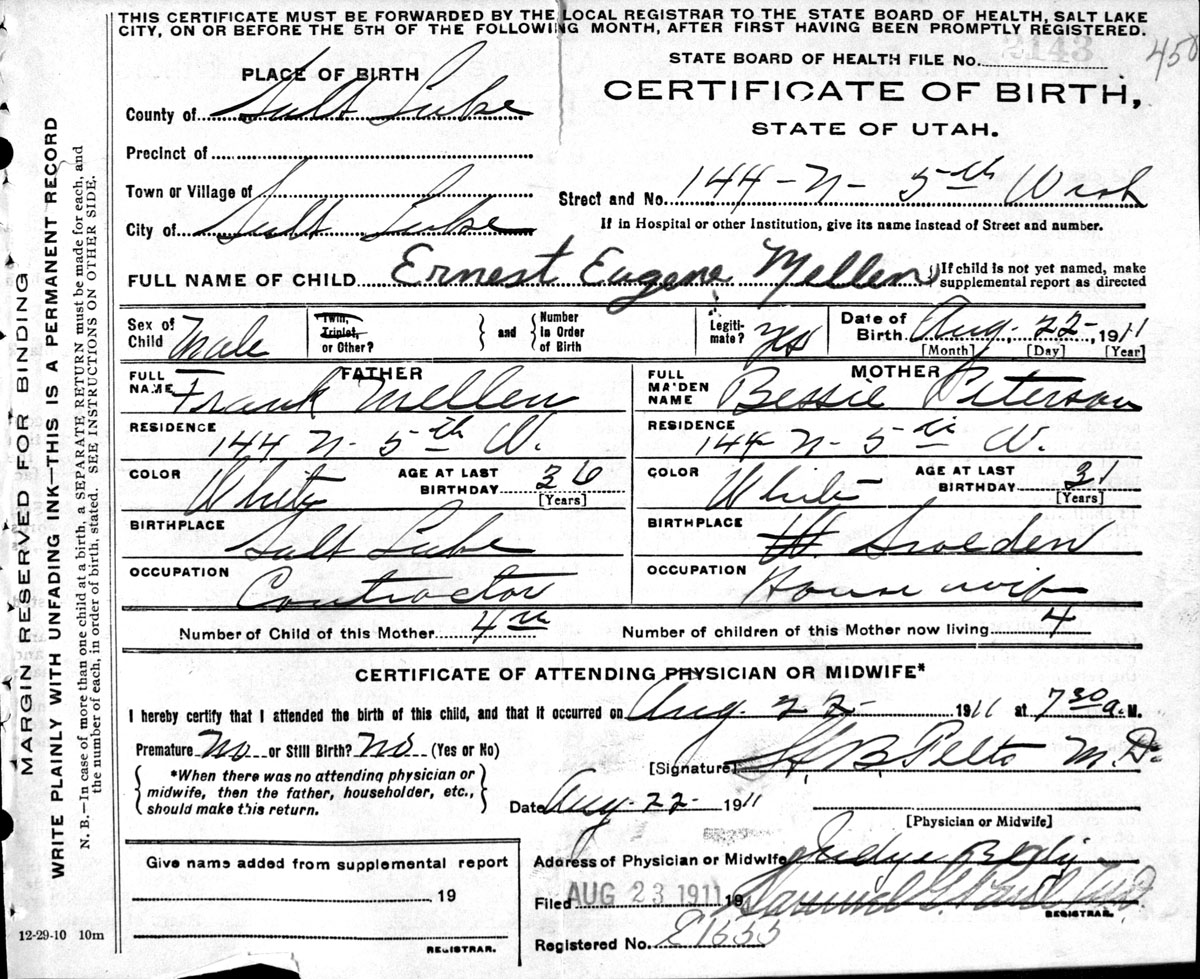 THIS CERTIFICATE MUST BE FORWARDED BY THE LOCAL REGISTRAR TO THE STATE BOARD OF HEALTH, SALT LAKE
CITY, ON OR BEFORE THE 5TH OF THE FOLLOWING MONTH, AFTER FIRST HAVING BEEN PROMPTLY REGISTERED.
MARGIN RESERVED FOR BINDING
WRITE PLAINLY WITH UNFADING INK—THIS IS A PERMANENT RECORD
N. B.—In case of more than one child at a birth, a SEPARATE RETURN must be made for each, and
the number of each, in order of birth, stated. SEE INSTRUCTIONS ON OTHER SIDE.
STATE BOARD OF HEALTH FILE No. 2143
458
PLACE OF BIRTH
CERTIFICATE OF BIRTH,
STATE OF UTAH.
County of Salt Lake
Precinct of
Town or Village of
City of Salt Lake
Street and No. 144 - N - 5th West
If in Hospital or other Institution, give its name instead of Street and number.
FULL NAME OF CHILD Ernest Eugene Mellen
If child is not yet named, make
supplemental report as directed
Sex of Child Male
Twin, Triplet, or Other?
and
Number in Order of Birth
Legitimate? Yes
Date of Birth Aug. 22, 1911
[Month] [Day] [Year]
FATHER
FULL NAME Frank Mellen
MOTHER
FULL MAIDEN NAME Bessie Peterson
RESIDENCE 144 N - 5th W.
RESIDENCE 144 N - 5th W.
COLOR White AGE AT LAST BIRTHDAY 36 [Years]
COLOR White AGE AT LAST BIRTHDAY 31 [Years]
BIRTHPLACE Salt Lake
BIRTHPLACE Sweden
OCCUPATION Contractor
OCCUPATION Housewife
Number of Child of this Mother 4th
Number of children of this Mother now living 4
CERTIFICATE OF ATTENDING PHYSICIAN OR MIDWIFE*
I hereby certify that I attended the birth of this child, and that it occurred on Aug. 22 1911 at 7 30 a. M.
Premature No or Still Birth? No (Yes or No)
*When there was no attending physician or
midwife, then the father, householder, etc.,
should make this return.
[Signature] H. B. Felts M.D.
Date Aug. 22 1911
[Physician or Midwife]
Give name added from supplemental report
19
REGISTRAR.
Address of Physician or Midwife Judge Bldg
Filed AUG 23 1911 19
REGISTRAR.
Registered No. 
12-29-10 10m